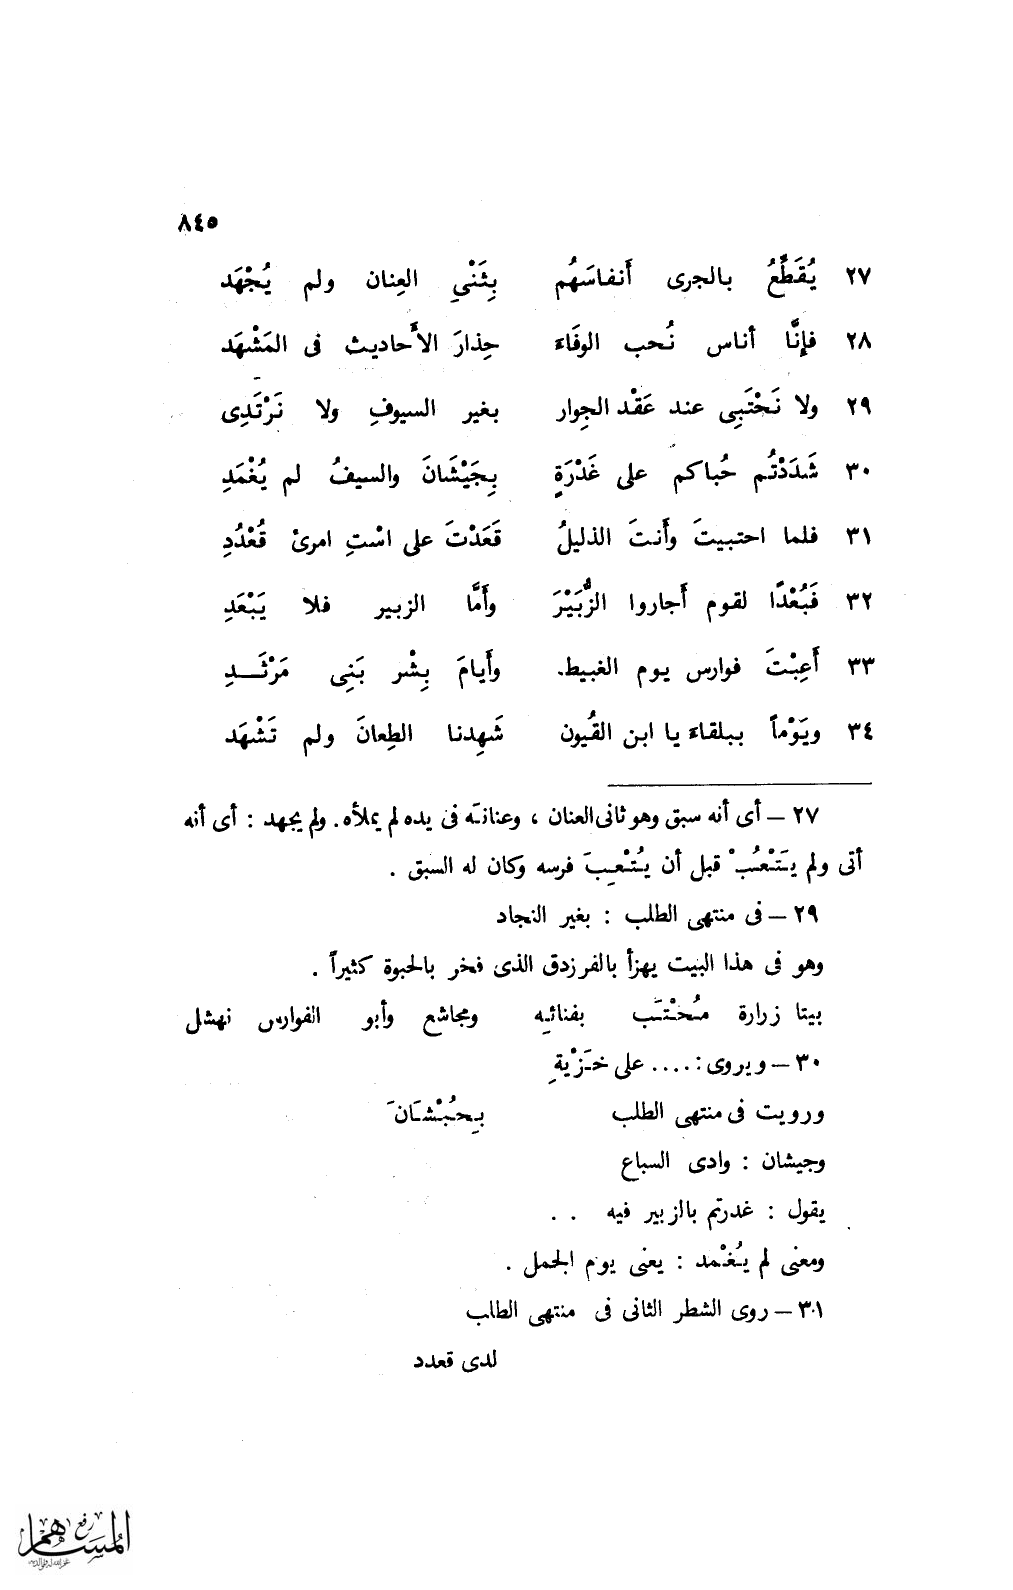 ٨٤٥
٢٧ يُقَطِّعُ بالجرى أَنفاسَهُم بِثَنْىِ العِنان ولم يُجْهَد
٢٨ فإنَّا أناس نُحب الوفَاءَ حِذارَ الأَحاديث فى المَشْهَد
٢٩ ولا نَحْتَبِى عند عَقْد الجِوار بغير السيوفِ ولا نَرْتَدِى
٣٠ شَدَدْتُم حُباكم على غَدْرَةٍ بِجَيْشَانَ والسيفُ لم يُغْمَدِ
٣١ فلما احتبيتَ وأَنتَ الذليلُ قَعَدْتَ على اسْتِ امرىْ قُعْدُدِ
٣٢ فَبُعْدًا لقوم أَجاروا الزُّبَيْرَ وأَمَّا الزبير فلا يَبْعَدِ
٣٣ أَعِبْتَ فوارس يوم الغبيط. وأَيامَ بِشْر بَنِى مَرْثَـــدِ
٣٤ ويَوْماً ببلقاءَ يا ابن القُيون شَهِدنا الطِعانَ ولم تَشْهَد
٢٧ – أى أنه سبق وهو ثانى العنان ، وعنانه فى يده لم يملأه. ولم يجهد : أى أنه
أتى ولم يَتْعُبْ قبل أن يُتْعِبَ فرسه وكان له السبق .
٢٩ – فى منتهى الطلب : بغير النجاد
وهو فى هذا البيت يهزأ بالفرزدق الذى فخر بالحبوة كثيراً .
بيتا زرارة مُحْتَب بفنائِه ومجاشع وأبو الفوارس نهشل
٣٠ – ويروى : .... على خَزْيةِ
ورويت فى منتهى الطلب بِحُبْشَانَ
وجيشان : وادى السباع
يقول : غدرتم بالزبير فيه . .
ومعنى لم يُغْمد : يعنى يوم الجمل .
٣١ – روى الشطر الثانى فى منتهى الطلب
لدى قعدد
رفع
المساهم